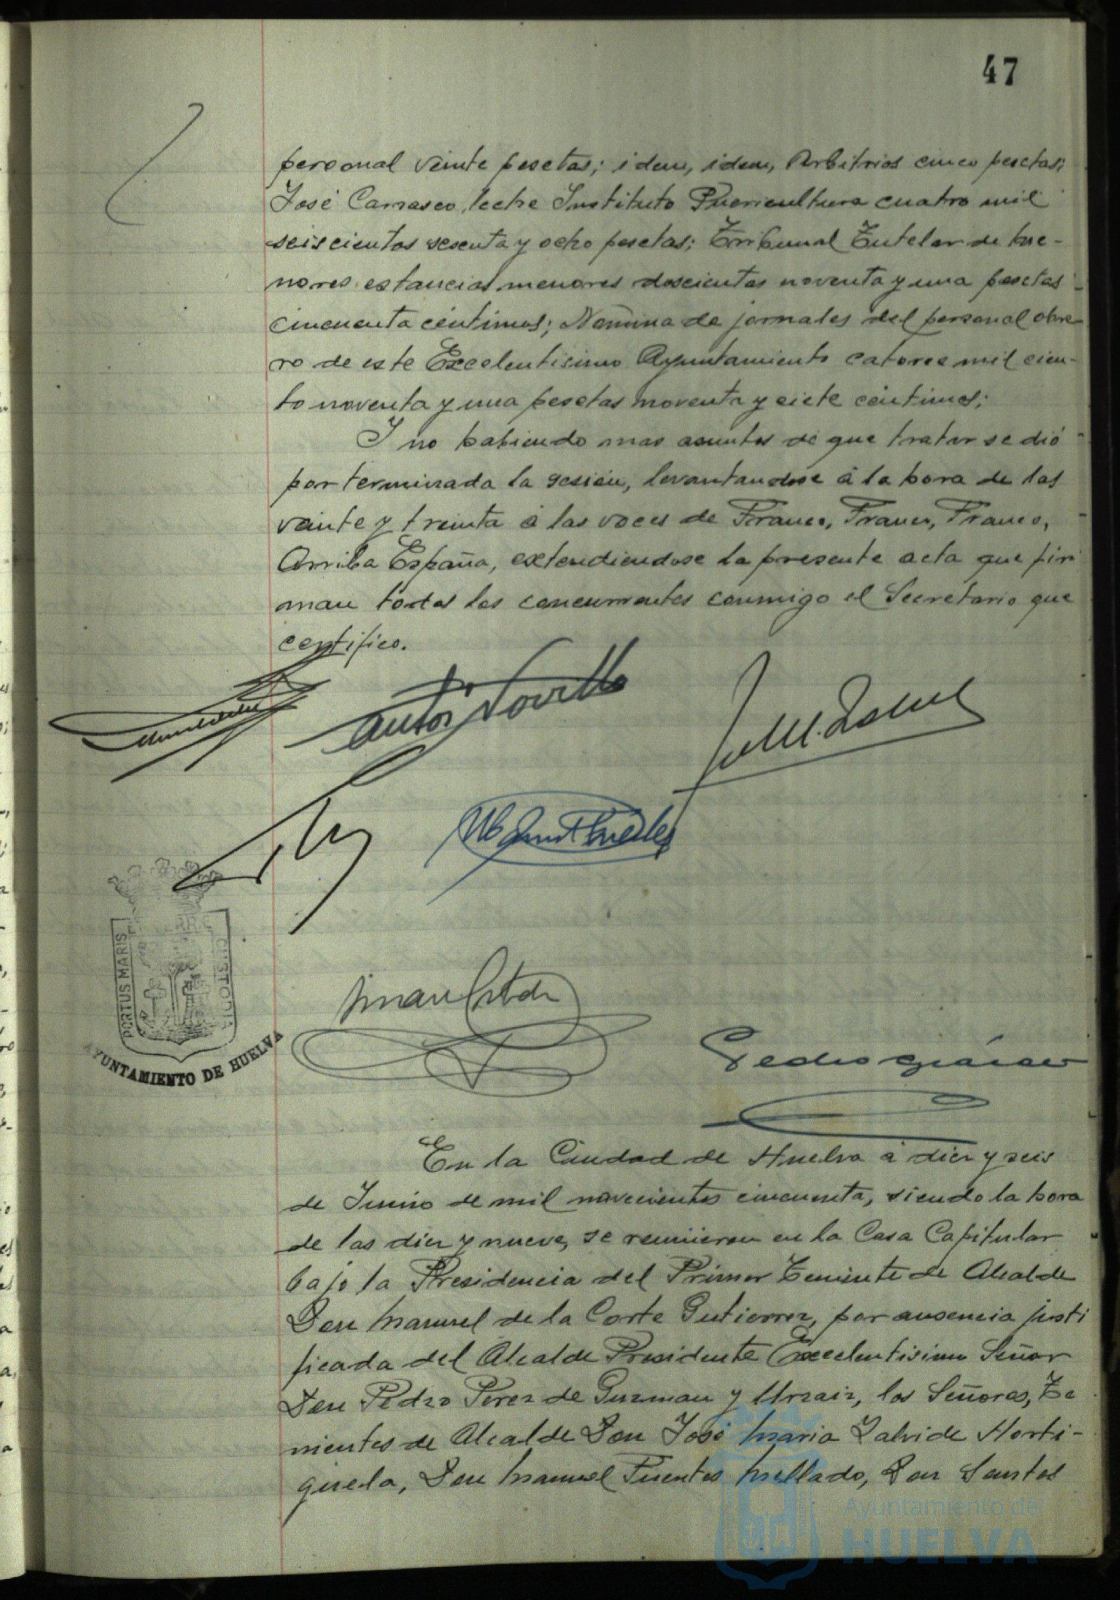 47
personal veinte pesetas; idem, idem, Arbitrios cinco pesetas;
José Carrasco, leche Instituto Puericultura cuatro mil
seiscientos sesenta y ocho pesetas; Tribunal Tutelar de me-
nores estancias menores doscientas noventa y una pesetas
cincuenta céntimos; Nómina de jornales del personal obre-
ro de este Excelentisimo Ayuntamiento catorce mil cien-
to noventa y una pesetas noventa y siete céntimos;
Y no habiendo mas asuntos de que tratar se dió
por terminada la sesión, levantandose á la hora de las
veinte y treinta á las voces de Franco, Franco, Franco,
Arriba España, extendiendose la presente acta que fir
man todos los concurrentes conmigo el Secretario que
certifico.
PORTUS MARIS
CUSTODIA
AYUNTAMIENTO DE HUELVA
En la Ciudad de Huelva á diez y seis
de Junio de mil novecientos cincuenta, siendo la hora
de las diez y nueve, se reunieron en la Casa Capitular
bajo la Presidencia del Primer Teniente de Alcalde
Don Manuel de la Corte Gutierrez, por ausencia justi
ficada del Alcalde Presidente Excelentisimo Señor
Don Pedro Perez de Guzman y Urzaiz, los Señores, Te
nientes de Alcalde Don José Maria Zalvide Horti-
güela, Don Manuel Fuentes Mellado, Don Santos
Ayuntamiento de
HUELVA